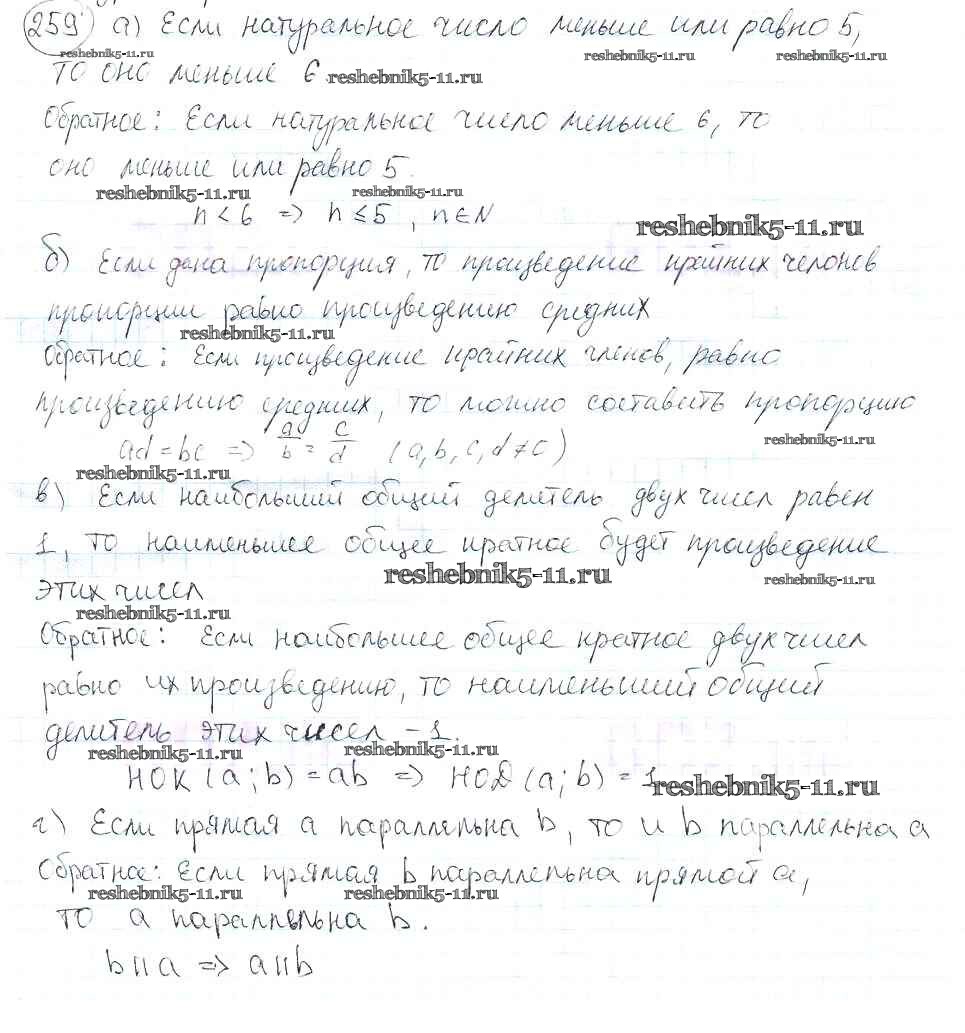 259 а) Если натуральное число меньше или равно 5,
reshebnik5-11.ru reshebnik5-11.ru reshebnik5-11.ru
то оно меньше 6. reshebnik5-11.ru
Обратное: Если натуральное число меньше 6, то
оно меньше или равно 5.
reshebnik5-11.ru reshebnik5-11.ru
n < 6 => n ≤ 5, n ∈ N
reshebnik5-11.ru
б) Если дана пропорция, то произведение крайних челонов
пропорции равно произведению средних
reshebnik5-11.ru
Обратное: Если произведение крайних членов, равно
произведению средних, то можно составить пропорцию
reshebnik5-11.ru
ad = bc => a/b = c/d (a, b, c, d ≠ 0)
reshebnik5-11.ru
в) Если наибольший общий делитель двух чисел равен
1, то наименьшее общее кратное будет произведение
reshebnik5-11.ru reshebnik5-11.ru
этих чисел
reshebnik5-11.ru
Обратное: Если наибольшее общее кратное двух чисел
равно их произведению, то наименьший общий
делитель этих чисел - 1.
reshebnik5-11.ru reshebnik5-11.ru
НОК (a; b) = ab => НОД (a; b) = 1
reshebnik5-11.ru
г) Если прямая a параллельна b, то и b параллельна a
Обратное: Если прямая b параллельна прямой a,
reshebnik5-11.ru reshebnik5-11.ru
то a параллельна b.
b ıı a => a ıı b